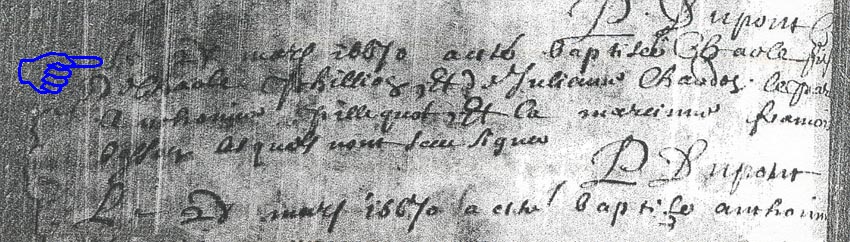 P. Dupont
Le 28 mars 16670 a esté baptisée Charle
de Charle Philliog Et de Julianne Chardos le par
Anthoine Phillequot Et la marainne framoi
lesquels nont sceu signer
P. Dupont
Le 28 mars 16670 a esté baptise anthoin